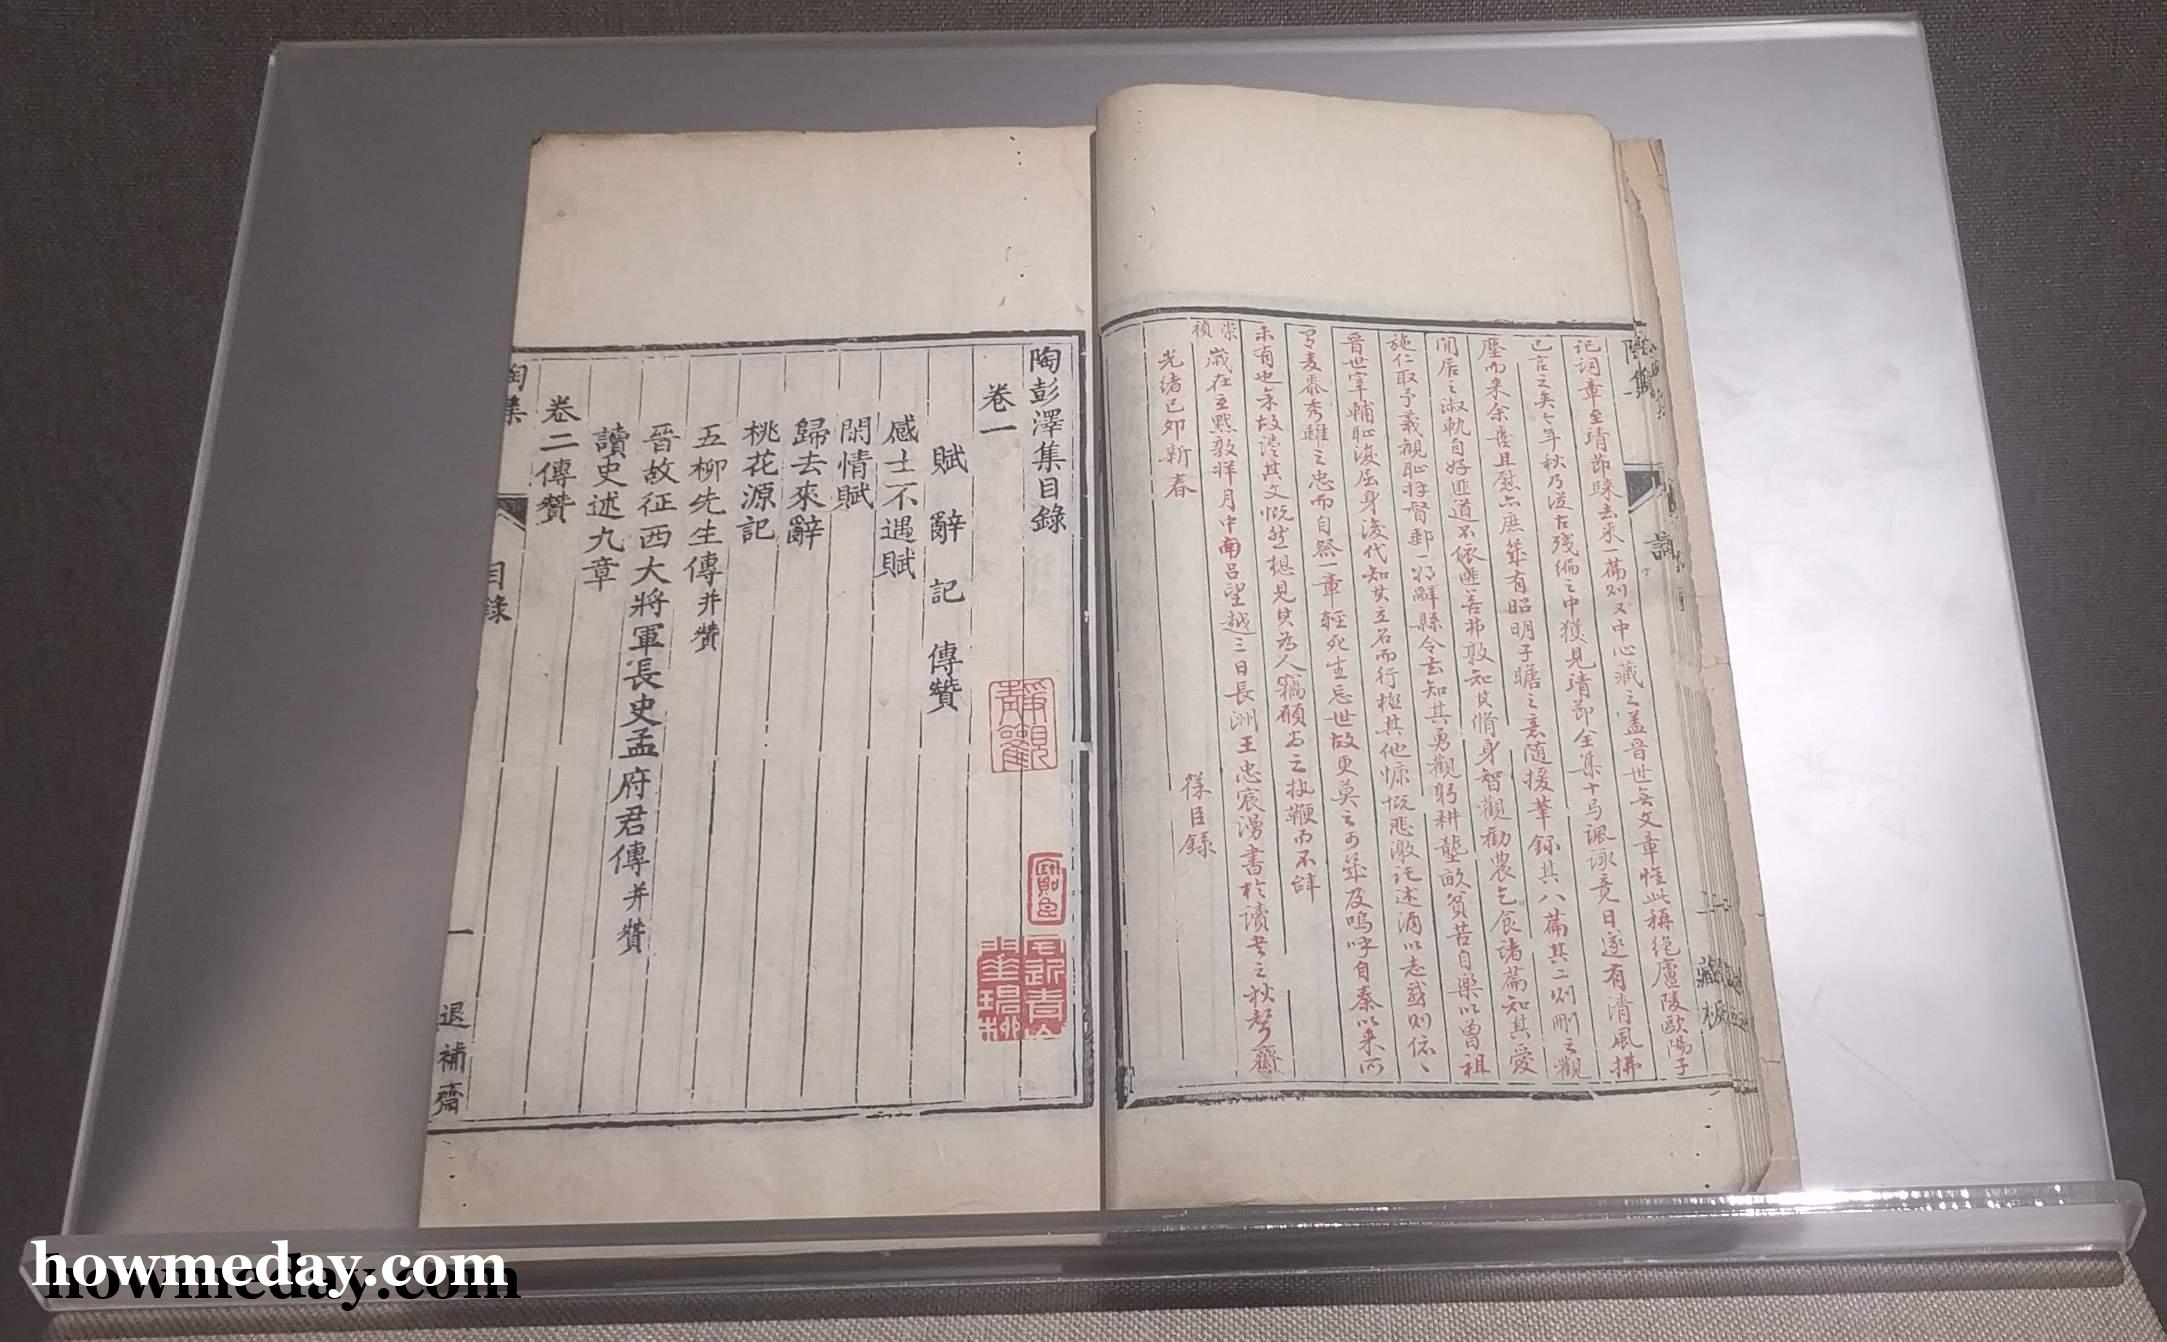 記詞章至靖節歸去來一篇則又中心藏之蓋晉世無文章惟此稱絕廬陵歐陽子
已言之矣今年秋乃從古殘編之中獲見靖節全集十馬諷詠竟日遂有清風拂
塵而來余喜且慰點庶幾有昭明子瞻之意隨援筆錄其八篇其二則刪之觀
閒居之淑軌自好匪道不依匪善弗敦知其脩身智觀勸農乞食諸篇知其愛
施仁取予義觀恥將督郵一朝辭縣令去知其勇觀躬耕壟畝貧苦自樂以曾祖
晉世宰輔恥復屈身後代知其立名而行極其他慷慨悲激託述酒以志哉則依
麥黍秀離之忠而自祭一章輕死生忘世故更莫之可幾及嗚呼自秦以來所
未有也余故讀其文慨然想見其為人竊願為之執鞭而不辭
崇禎
歲在玄黓敦牂月中南呂望越三日長洲王忠宸湯書於讀書之秋聲齋
光緒己卯新春
錄
陶集
藏板
陶彭澤集目錄
卷一
賦 辭 記 傳贊
感士不遇賦
閑情賦
歸去來辭
桃花源記
五柳先生傳并贊
晉故征西大將軍長史孟府君傳并贊
讀史述九章
卷二傳贊
陶集
目錄
一
退補齋
靜觀
howmeday.com